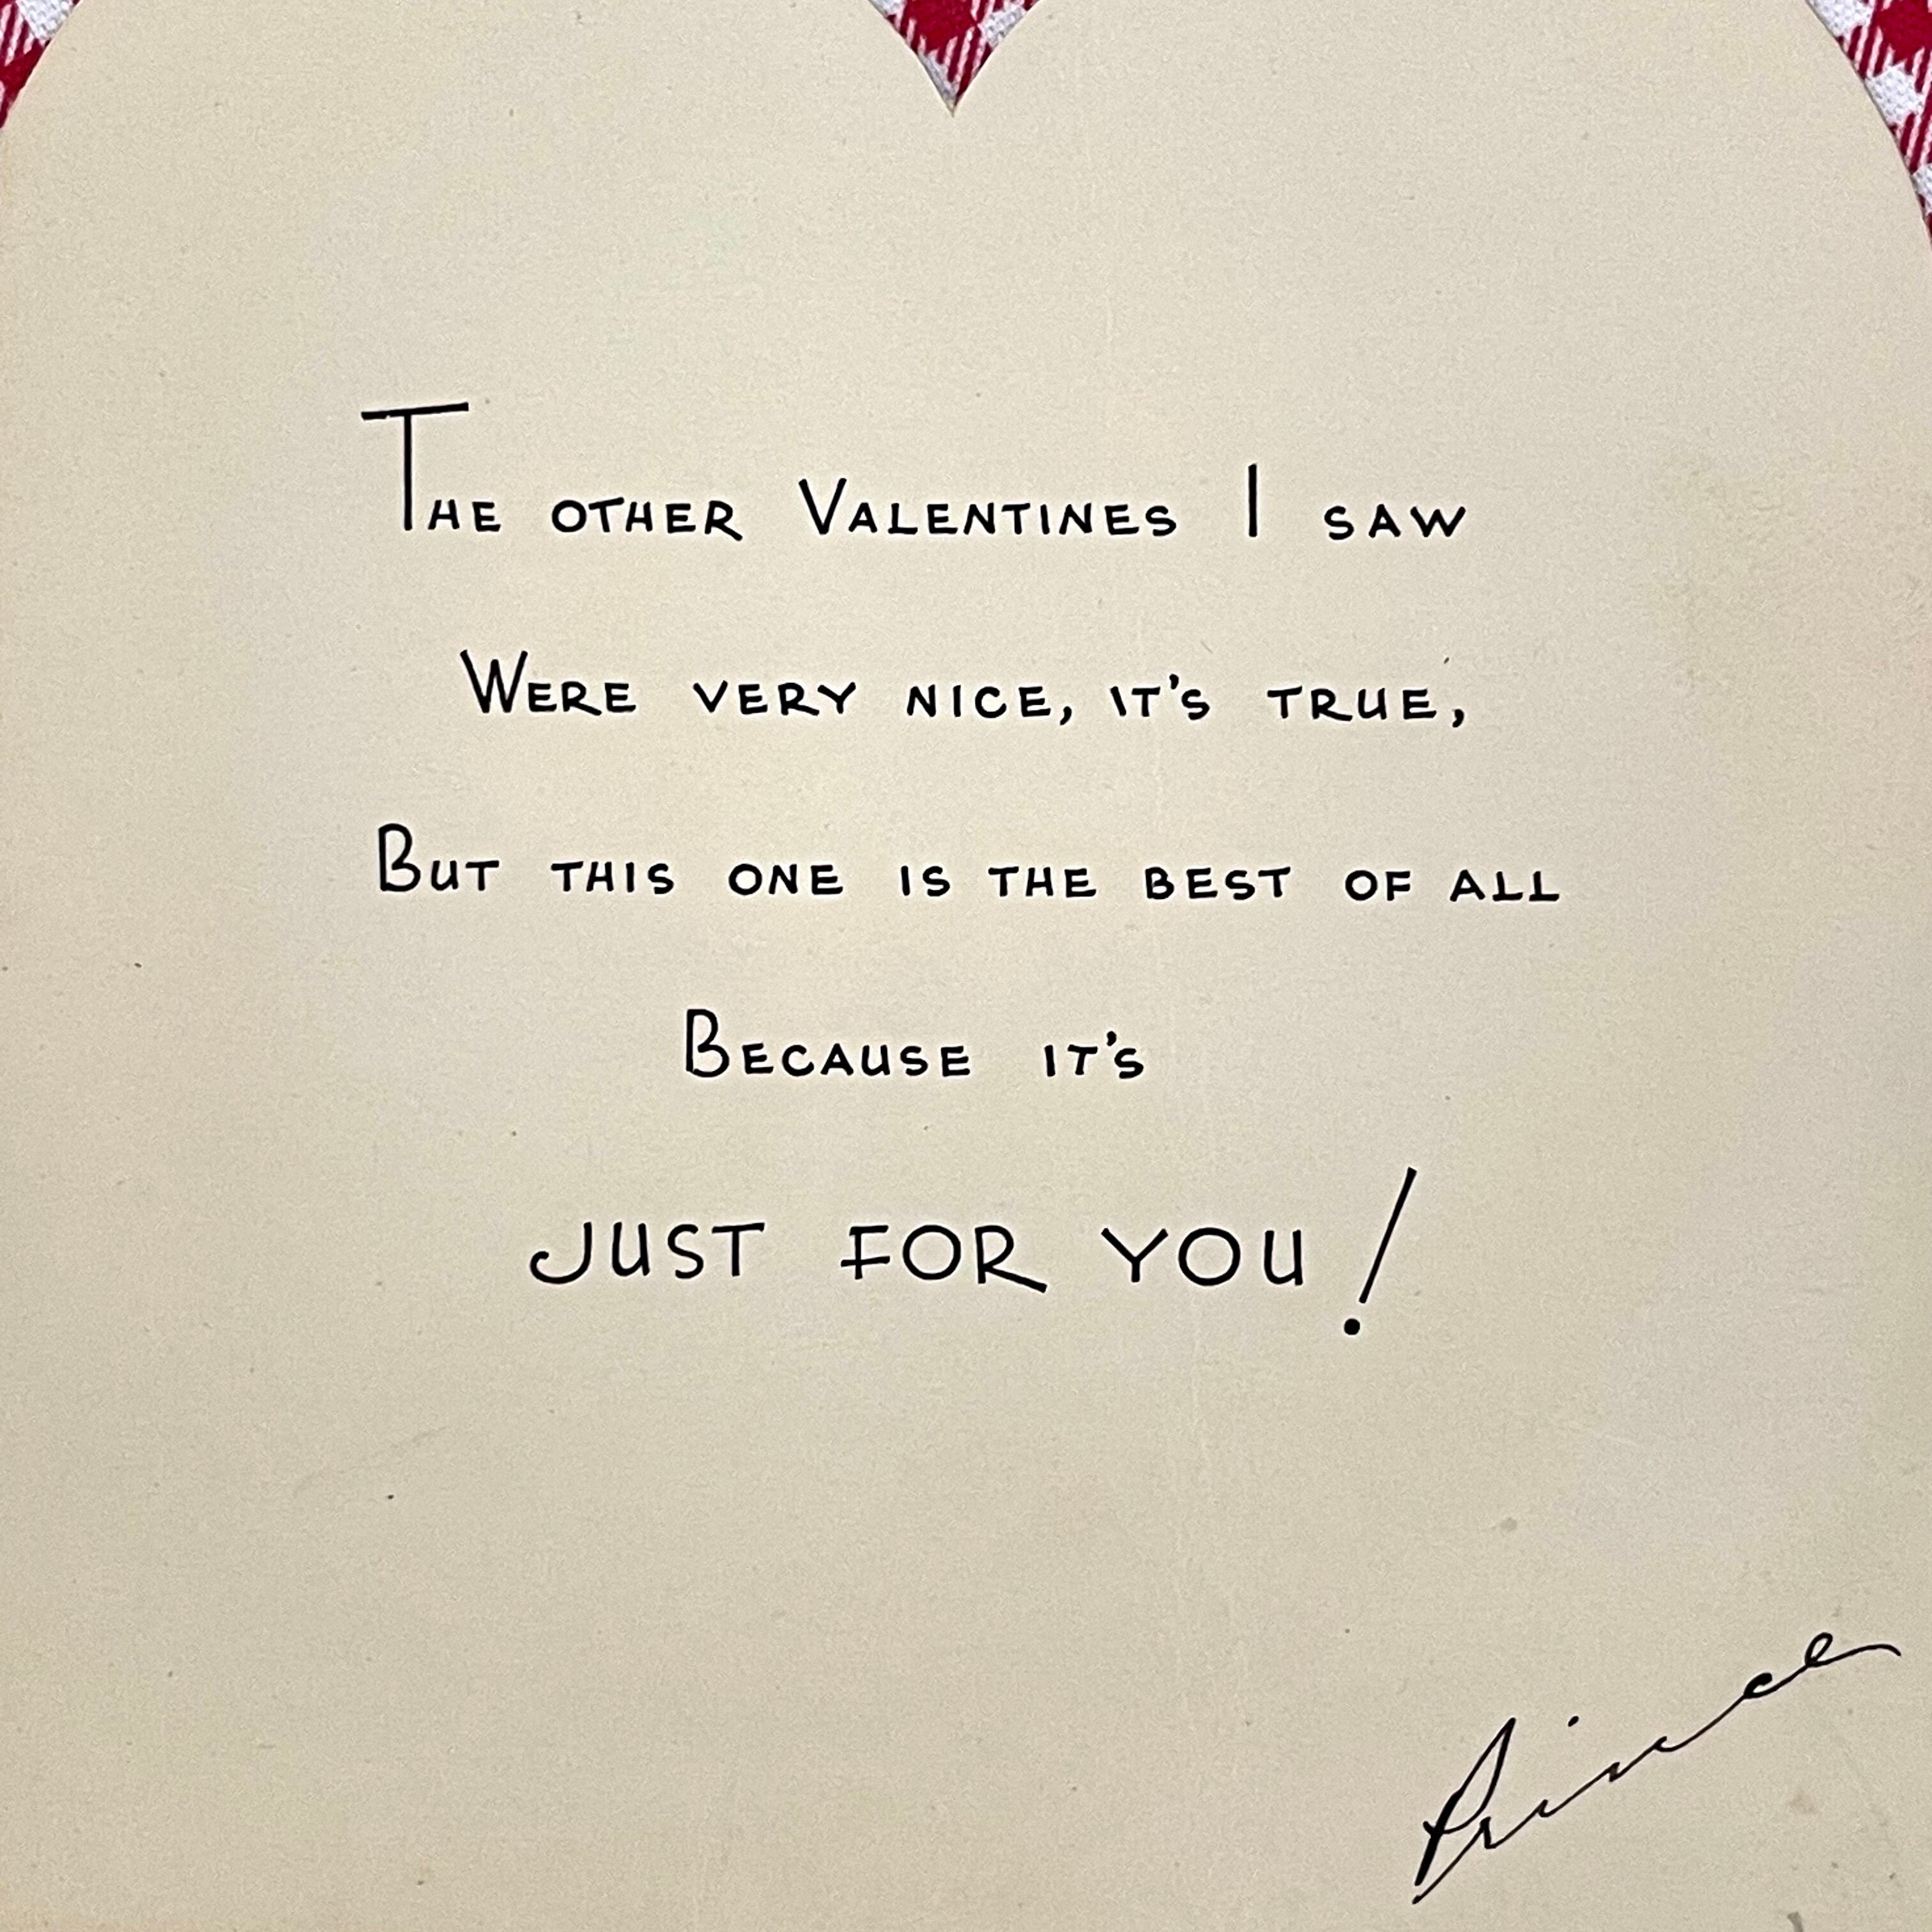 The other Valentines I saw
Were very nice, it's true,
But this one is the best of all
Because it's
JUST FOR YOU!
Prince